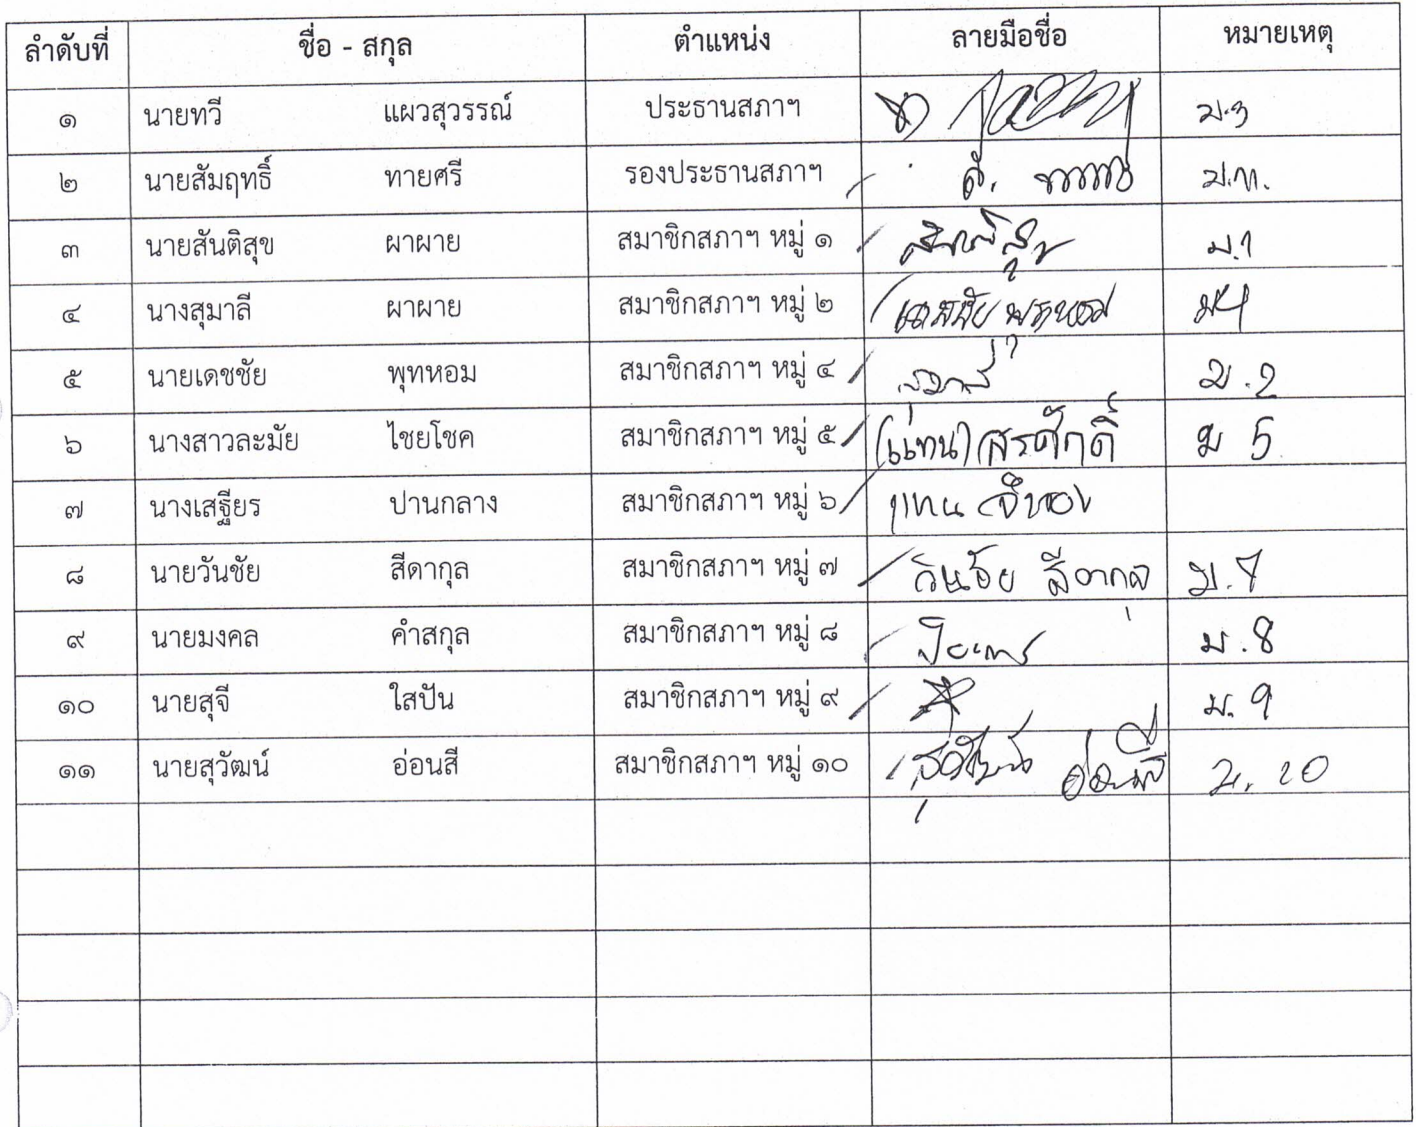 ลำดับที่ ชื่อ - สกุล ตำแหน่ง ลายมือชื่อ หมายเหตุ
๑ นายทวี แผวสุวรรณ์ ประธานสภาฯ ม.3
๒ นายสัมฤทธิ์ ทายศรี รองประธานสภาฯ
๓ นายสันติสุข ผาผาย สมาชิกสภาฯ หมู่ ๑ สันติสุข ม.1
๔ นางสุมาลี ผาผาย สมาชิกสภาฯ หมู่ ๒ เดชชัย พุทหอม ม4
๕ นายเดชชัย พุทหอม สมาชิกสภาฯ หมู่ ๔ สุมาลี ม.2
๖ นางสาวละมัย ไชยโชค สมาชิกสภาฯ หมู่ ๕ (แทน) สรศักดิ์ ม 5
๗ นางเสฐียร ปานกลาง สมาชิกสภาฯ หมู่ ๖ แทน
๘ นายวันชัย สีดากุล สมาชิกสภาฯ หมู่ ๗ วันชัย สีดากุล ม.7
๙ นายมงคล คำสกุล สมาชิกสภาฯ หมู่ ๘ ม.8
๑๐ นายสุจี ใสปัน สมาชิกสภาฯ หมู่ ๙ ม.9
๑๑ นายสุวัฒน์ อ่อนสี สมาชิกสภาฯ หมู่ ๑๐ สุวัฒน์ อ่อนสี ม.10